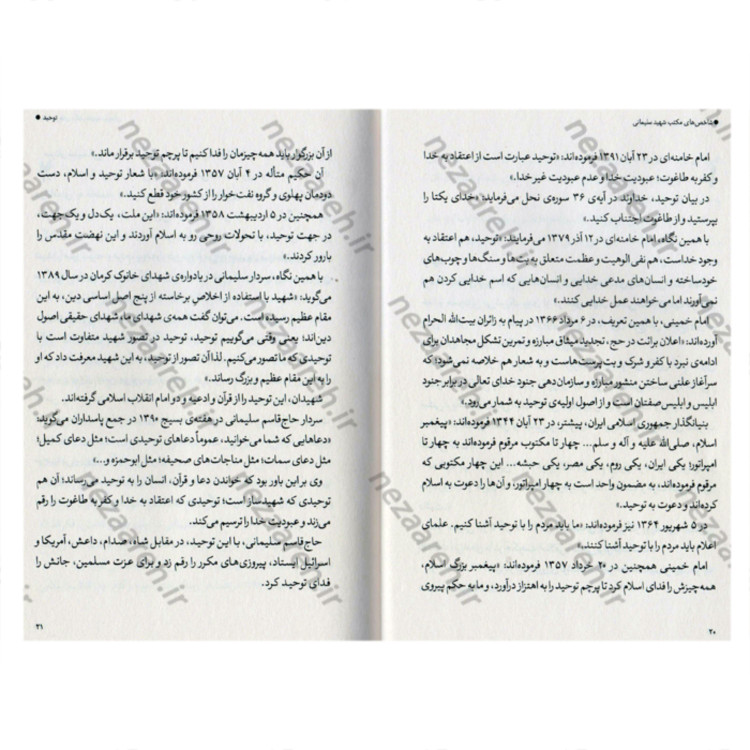 شاخص‌های مکتب شهید سلیمانی
امام خامنه‌ای در ۲۳ آبان ۱۳۹۱ فرموده‌اند: «توحید عبارت است از اعتقاد به خدا
و کفر به طاغوت؛ عبودیت خدا و عدم عبودیت غیر خدا.»
در بیان توحید، خداوند در آیه‌ی ۳۶ سوره‌ی نحل می‌فرماید: «خدای یکتا را
بپرستید و از طاغوت اجتناب کنید.»
با همین نگاه، امام خامنه‌ای در ۱۲ آذر ۱۳۷۹ می‌فرمایند: «توحید، هم اعتقاد به
وجود خداست، هم نفی الوهیت و عظمت متعلق به بت‌ها و سنگ‌ها و چوب‌های
خودساخته و انسان‌های مدعی خدایی و انسان‌هایی که اسم خدایی کردن هم
نمی‌آورند اما می‌خواهند عمل خدایی کنند.»
امام خمینی، با همین تعریف، در ۶ مرداد ۱۳۶۶ در پیام به زائران بیت‌الله الحرام
آورده‌اند: «اعلان برائت در حج، تجدید میثاق مبارزه و تمرین تشکل مجاهدان برای
ادامه‌ی نبرد با کفر و شرک و بت‌پرستی‌هاست و به شعار هم خلاصه نمی‌شود؛ که
سرآغاز علنی ساختن منشور مبارزه و سازمان‌دهی جنود خدای تعالی در برابر جنود
ابلیس و ابلیس‌صفتان است و از اصول اولیه‌ی توحید به شمار می‌رود.»
بنیانگذار جمهوری اسلامی ایران، پیشتر، در ۲۳ آبان ۱۳۴۴ فرموده‌اند: «پیغمبر
اسلام، صلی‌الله علیه و آله و سلم... چهار تا مکتوب مرقوم فرموده‌اند به چهار تا
امپراتور؛ یکی ایران، یکی روم، یکی مصر، یکی حبشه... این چهار مکتوبی که
مرقوم فرموده‌اند، به مضمون واحد است به چهار امپراتور، و آن‌ها را دعوت به اسلام
کرده‌اند و دعوت به توحید.»
در ۵ شهریور ۱۳۶۴ نیز فرموده‌اند: «ما باید مردم را با توحید آشنا کنیم. علمای
اعلام باید مردم را با توحید آشنا کنند.»
امام خمینی همچنین در ۲۰ خرداد ۱۳۵۷ فرموده‌اند: «پیغمبر بزرگ اسلام،
همه‌چیزش را فدای اسلام کرد تا پرچم توحید را به اهتزاز درآورد، و ما به حکم پیروی
۲۰
توحید
از آن بزرگوار باید همه‌چیزمان را فدا کنیم تا پرچم توحید برقرار ماند.»
آن حکیم متأله در ۴ آبان ۱۳۵۷ فرموده‌اند: «با شعار توحید و اسلام، دست
دودمان پهلوی و گروه نفت‌خوار را از کشور خود قطع کنید.»
همچنین در ۵ اردیبهشت ۱۳۵۸ فرموده‌اند: «این ملت، یک‌دل و یک‌جهت،
در جهت توحید، با تحولات روحی رو به اسلام آوردند و این نهضت مقدس را
بارور کردند.»
با همین نگاه، سردار سلیمانی در یادواره‌ی شهدای خانوک کرمان در سال ۱۳۸۹
می‌گوید: «شهید با استفاده از اخلاصِ برخاسته از پنج اصل اساسی دین، به این
مقام عظیم رسیده است. می‌توان گفت همه‌ی شهدای ما، شهدای حقیقی اصول
دین‌اند؛ یعنی وقتی می‌گوییم توحید، توحید در تصور شهید متفاوت است با
توحیدی که ما تصور می‌کنیم. لذا آن تصور از توحید، به این شهید معرفت داد که او
را به این مقام عظیم و بزرگ رساند.»
شهیدان، این توحید را از قرآن و ادعیه و دو امام انقلاب اسلامی گرفته‌اند.
سردار حاج‌قاسم سلیمانی در هفته‌ی بسیج ۱۳۹۰ در جمع پاسداران می‌گوید:
«دعاهایی که شما می‌خوانید، عموماً دعاهای توحیدی است؛ مثل دعای کمیل؛
مثل دعای سمات؛ مثل مناجات‌های صحیفه؛ مثل ابوحمزه و...»
وی بر این باور بود که خواندن دعا و قرآن، انسان را به توحید می‌رساند؛ آن هم
توحیدی که شهیدساز است؛ توحیدی که اعتقاد به خدا و کفر به طاغوت را رقم
می‌زند و عبودیت خدا را ترسیم می‌کند.
حاج‌قاسم سلیمانی، با این توحید، در مقابل شاه، صدام، داعش، آمریکا و
اسرائیل ایستاد، پیروزی‌های مکرر را رقم زد و برای عزت مسلمین، جانش را
فدای توحید کرد.
۲۱
nezaareh.ir
nezaareh.ir
nezaareh.ir
nezaareh.ir
nezaareh.ir
nezaareh.ir
nezaareh.ir
nezaareh.ir